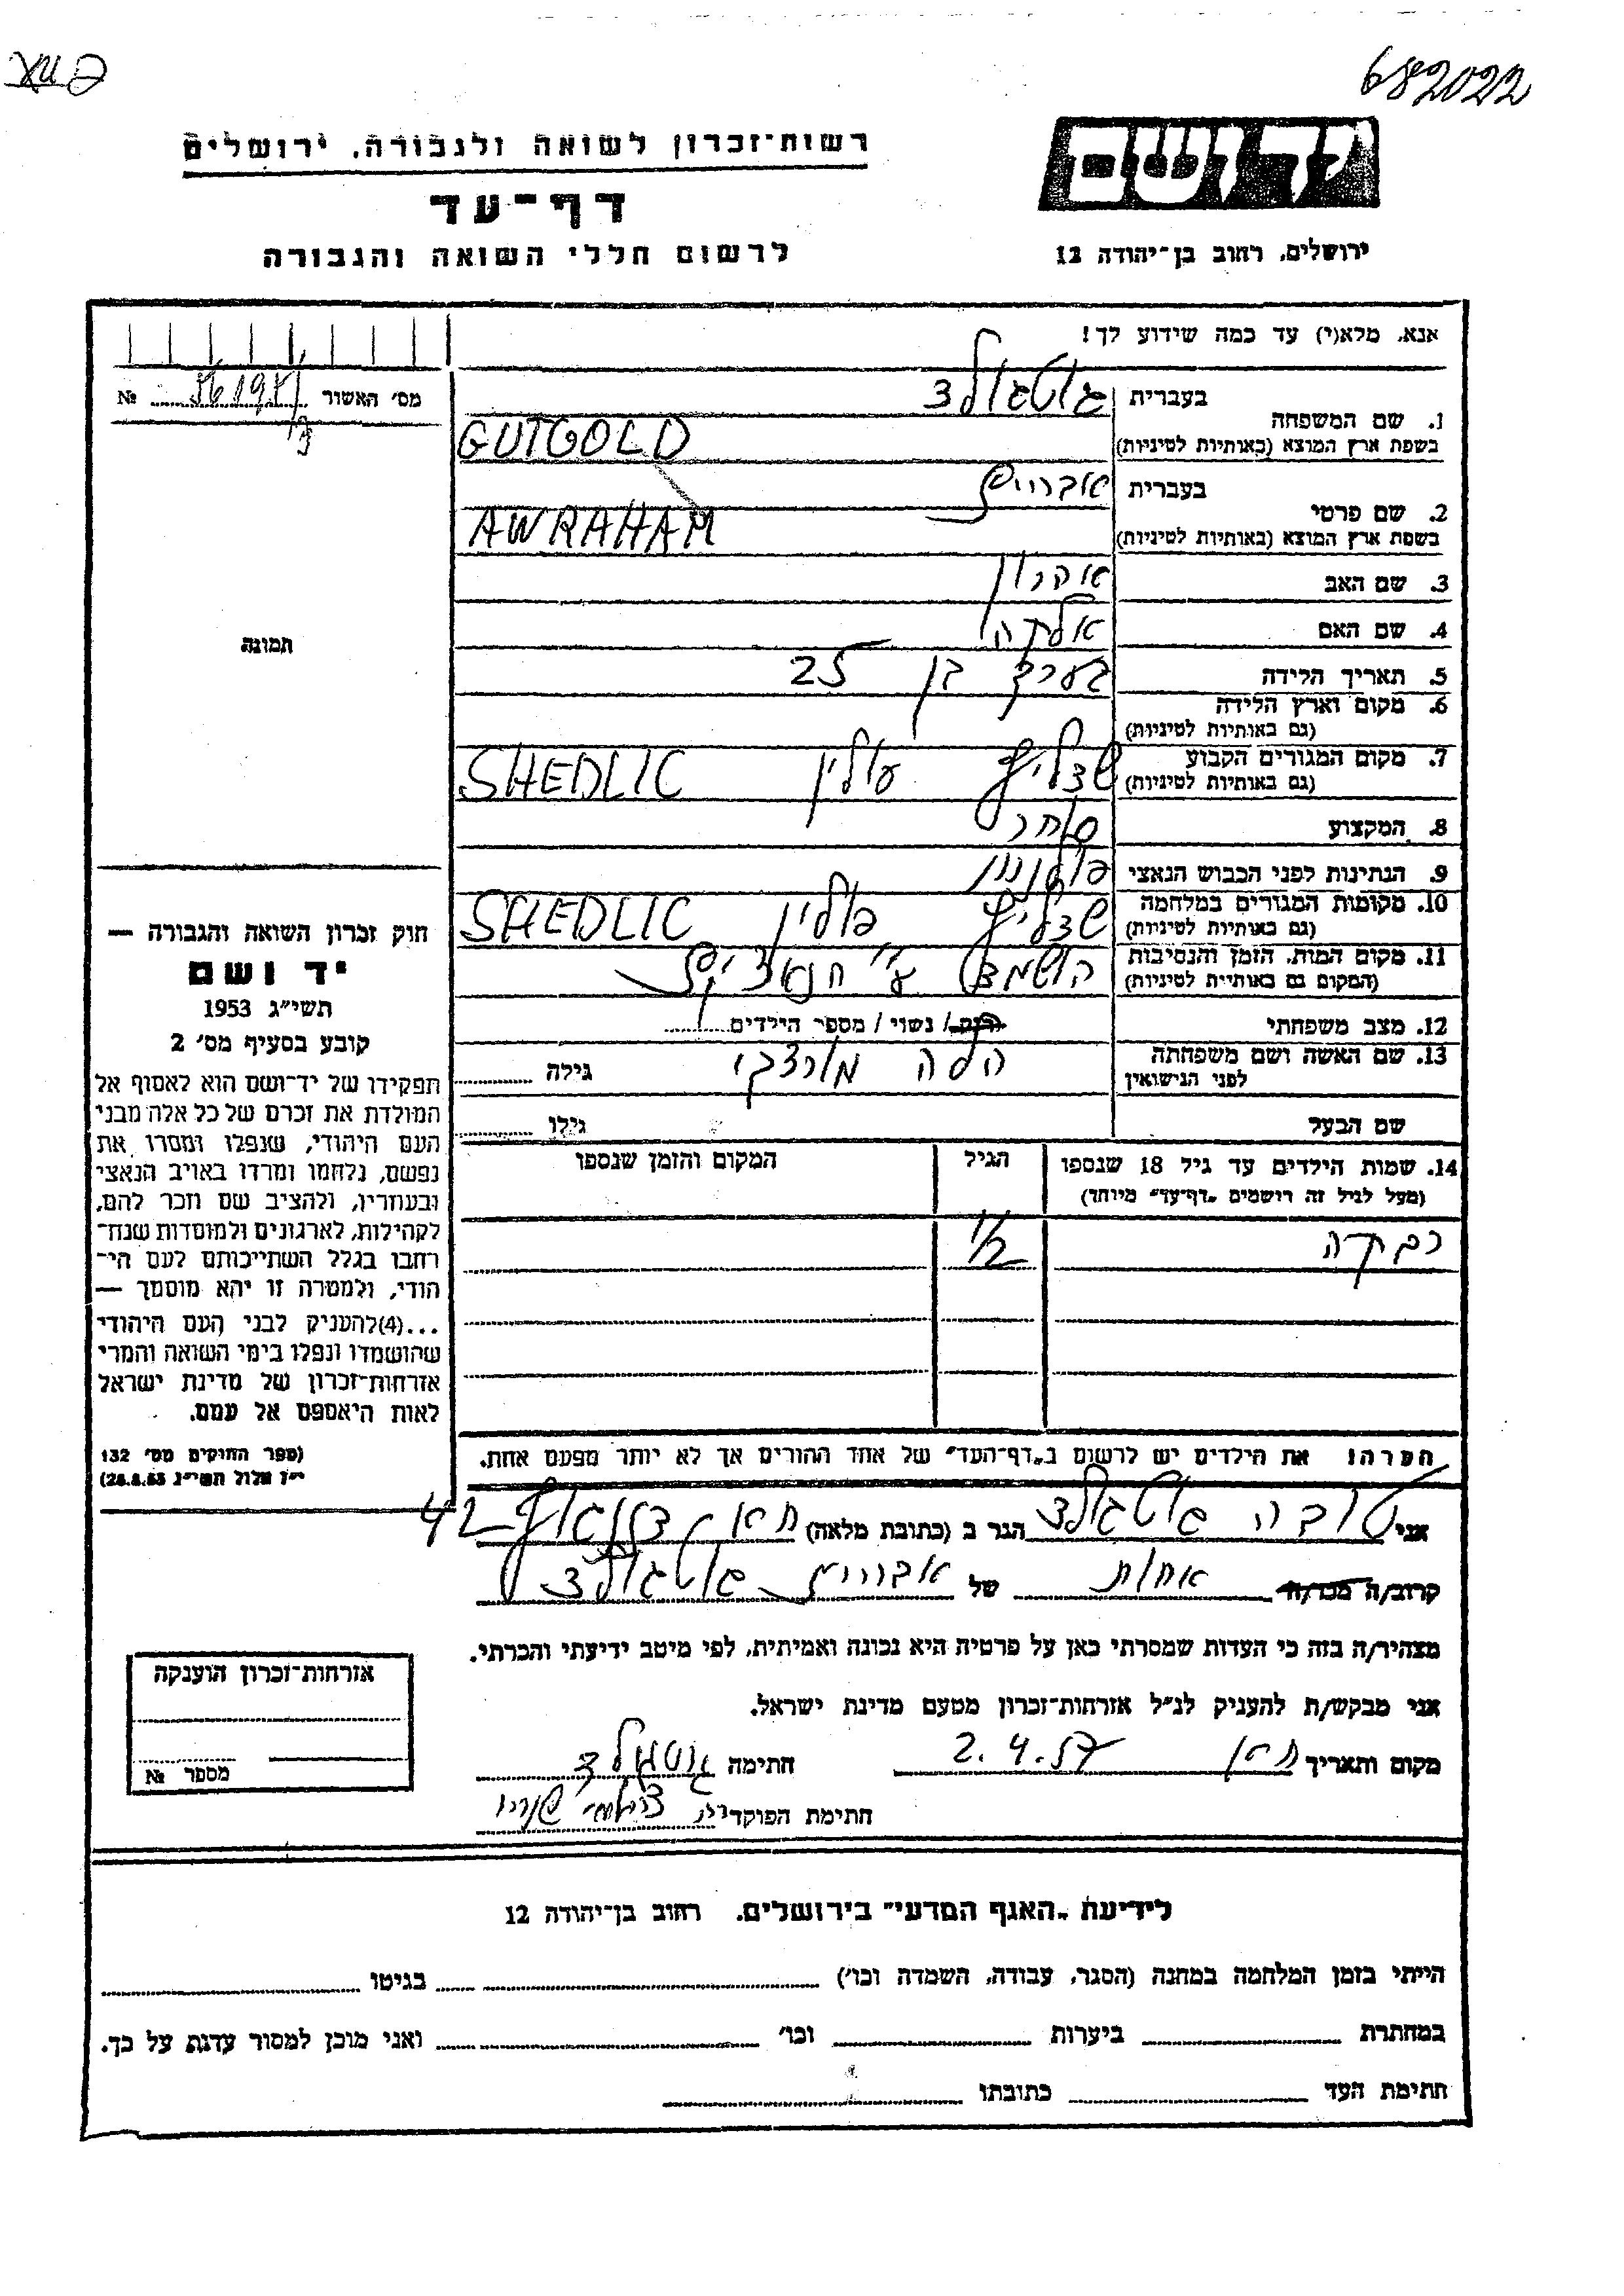 682022
רשות-זכרון לשואה ולגבורה, ירושלים
יד ושם
דף-עד
לרשום חללי השואה והגבורה
ירושלים, רחוב בן-יהודה 12
אנא, מלא(י) עד כמה שידוע לך!
מס' האשור № 
1. שם המשפחה
בעברית גוטגולד
בשפת ארץ המוצא (באותיות לטיניות) GUTGOLD
2. שם פרטי
בעברית אברהם
בשפת ארץ המוצא (באותיות לטיניות) AWRAHAM
3. שם האב אהרון
4. שם האם אלקה
5. תאריך הלידה בערך בן 25
6. מקום וארץ הלידה
(גם באותיות לטיניות)
7. מקום המגורים הקבוע שדליץ פולין SHEDLIC
(גם באותיות לטיניות)
8. המקצוע סוחר
9. הנתינות לפני הכבוש הנאצי
10. מקומות המגורים במלחמה שדליץ פולין SHEDLIC
(גם באותיות לטיניות)
11. מקום המות, הזמן והנסיבות הושמד ע"י הנאצים
(המקום גם באותיית לטיניות)
12. מצב משפחתי רווק / נשוי / מספר הילדים
13. שם האשה ושם משפחתה
לפני הנישואין הלה גילה
שם הבעל גילו
14. שמות הילדים עד גיל 18 שנספו
(מעל לגיל זה רושמים "דף-עד" מיוחד)
הגיל
המקום והזמן שנספו
רבקה 1/2
הערה! את הילדים יש לרשום ב"דף-העד" של אחד ההורים אך לא יותר מפעם אחת.
תמונה
חוק זכרון השואה והגבורה —
יד ושם
תשי"ג 1953
קובע בסעיף מס' 2
תפקידו של יד-ושם הוא לאסוף אל
המולדת את זכרם של כל אלה מבני
העם היהודי, שנפלו ומסרו את
נפשם, נלחמו ומרדו באויב הנאצי
ובעוזריו, ולהציב שם וזכר להם,
לקהילות, לארגונים ולמוסדות שנח-
רחבו בגלל השתייכותם לעם הי-
הודי, ולמטרה זו יהא מוסמך —
...(4)להעניק לבני העם היהודי
שהושמדו ונפלו בימי השואה והמרי
אזרחות-זכרון של מדינת ישראל
לאות היאספם אל עמם.
(ספר החוקים מס' 132
י"ז אלול תשי"ג 28.8.53)
אני טובה גוטגולד הגר ב (כתובת מלאה) 42
קרוב/ה מכר/ה אחות של אברהם גוטגולד
מצהיר/ה בזה כי העדות שמסרתי כאן על פרטיה היא נכונה ואמיתית, לפי מיטב ידיעתי והכרתי.
אני מבקש/ת להעניק לנ"ל אזרחות-זכרון מטעם מדינת ישראל.
מקום ותאריך 2.4.57 חתימה גוטגולד
חתימת הפוקד
אזרחות-זכרון הוענקה
מספר №
לידיעת "האגף המדעי" בירושלים, רחוב בן-יהודה 12
הייתי בזמן המלחמה במחנה (הסגר, עבודה, השמדה וכו') בגיטו
במחתרת ביערות וכו' ואני מוכן למסור עדות על כך.
חתימת העד כתובתו